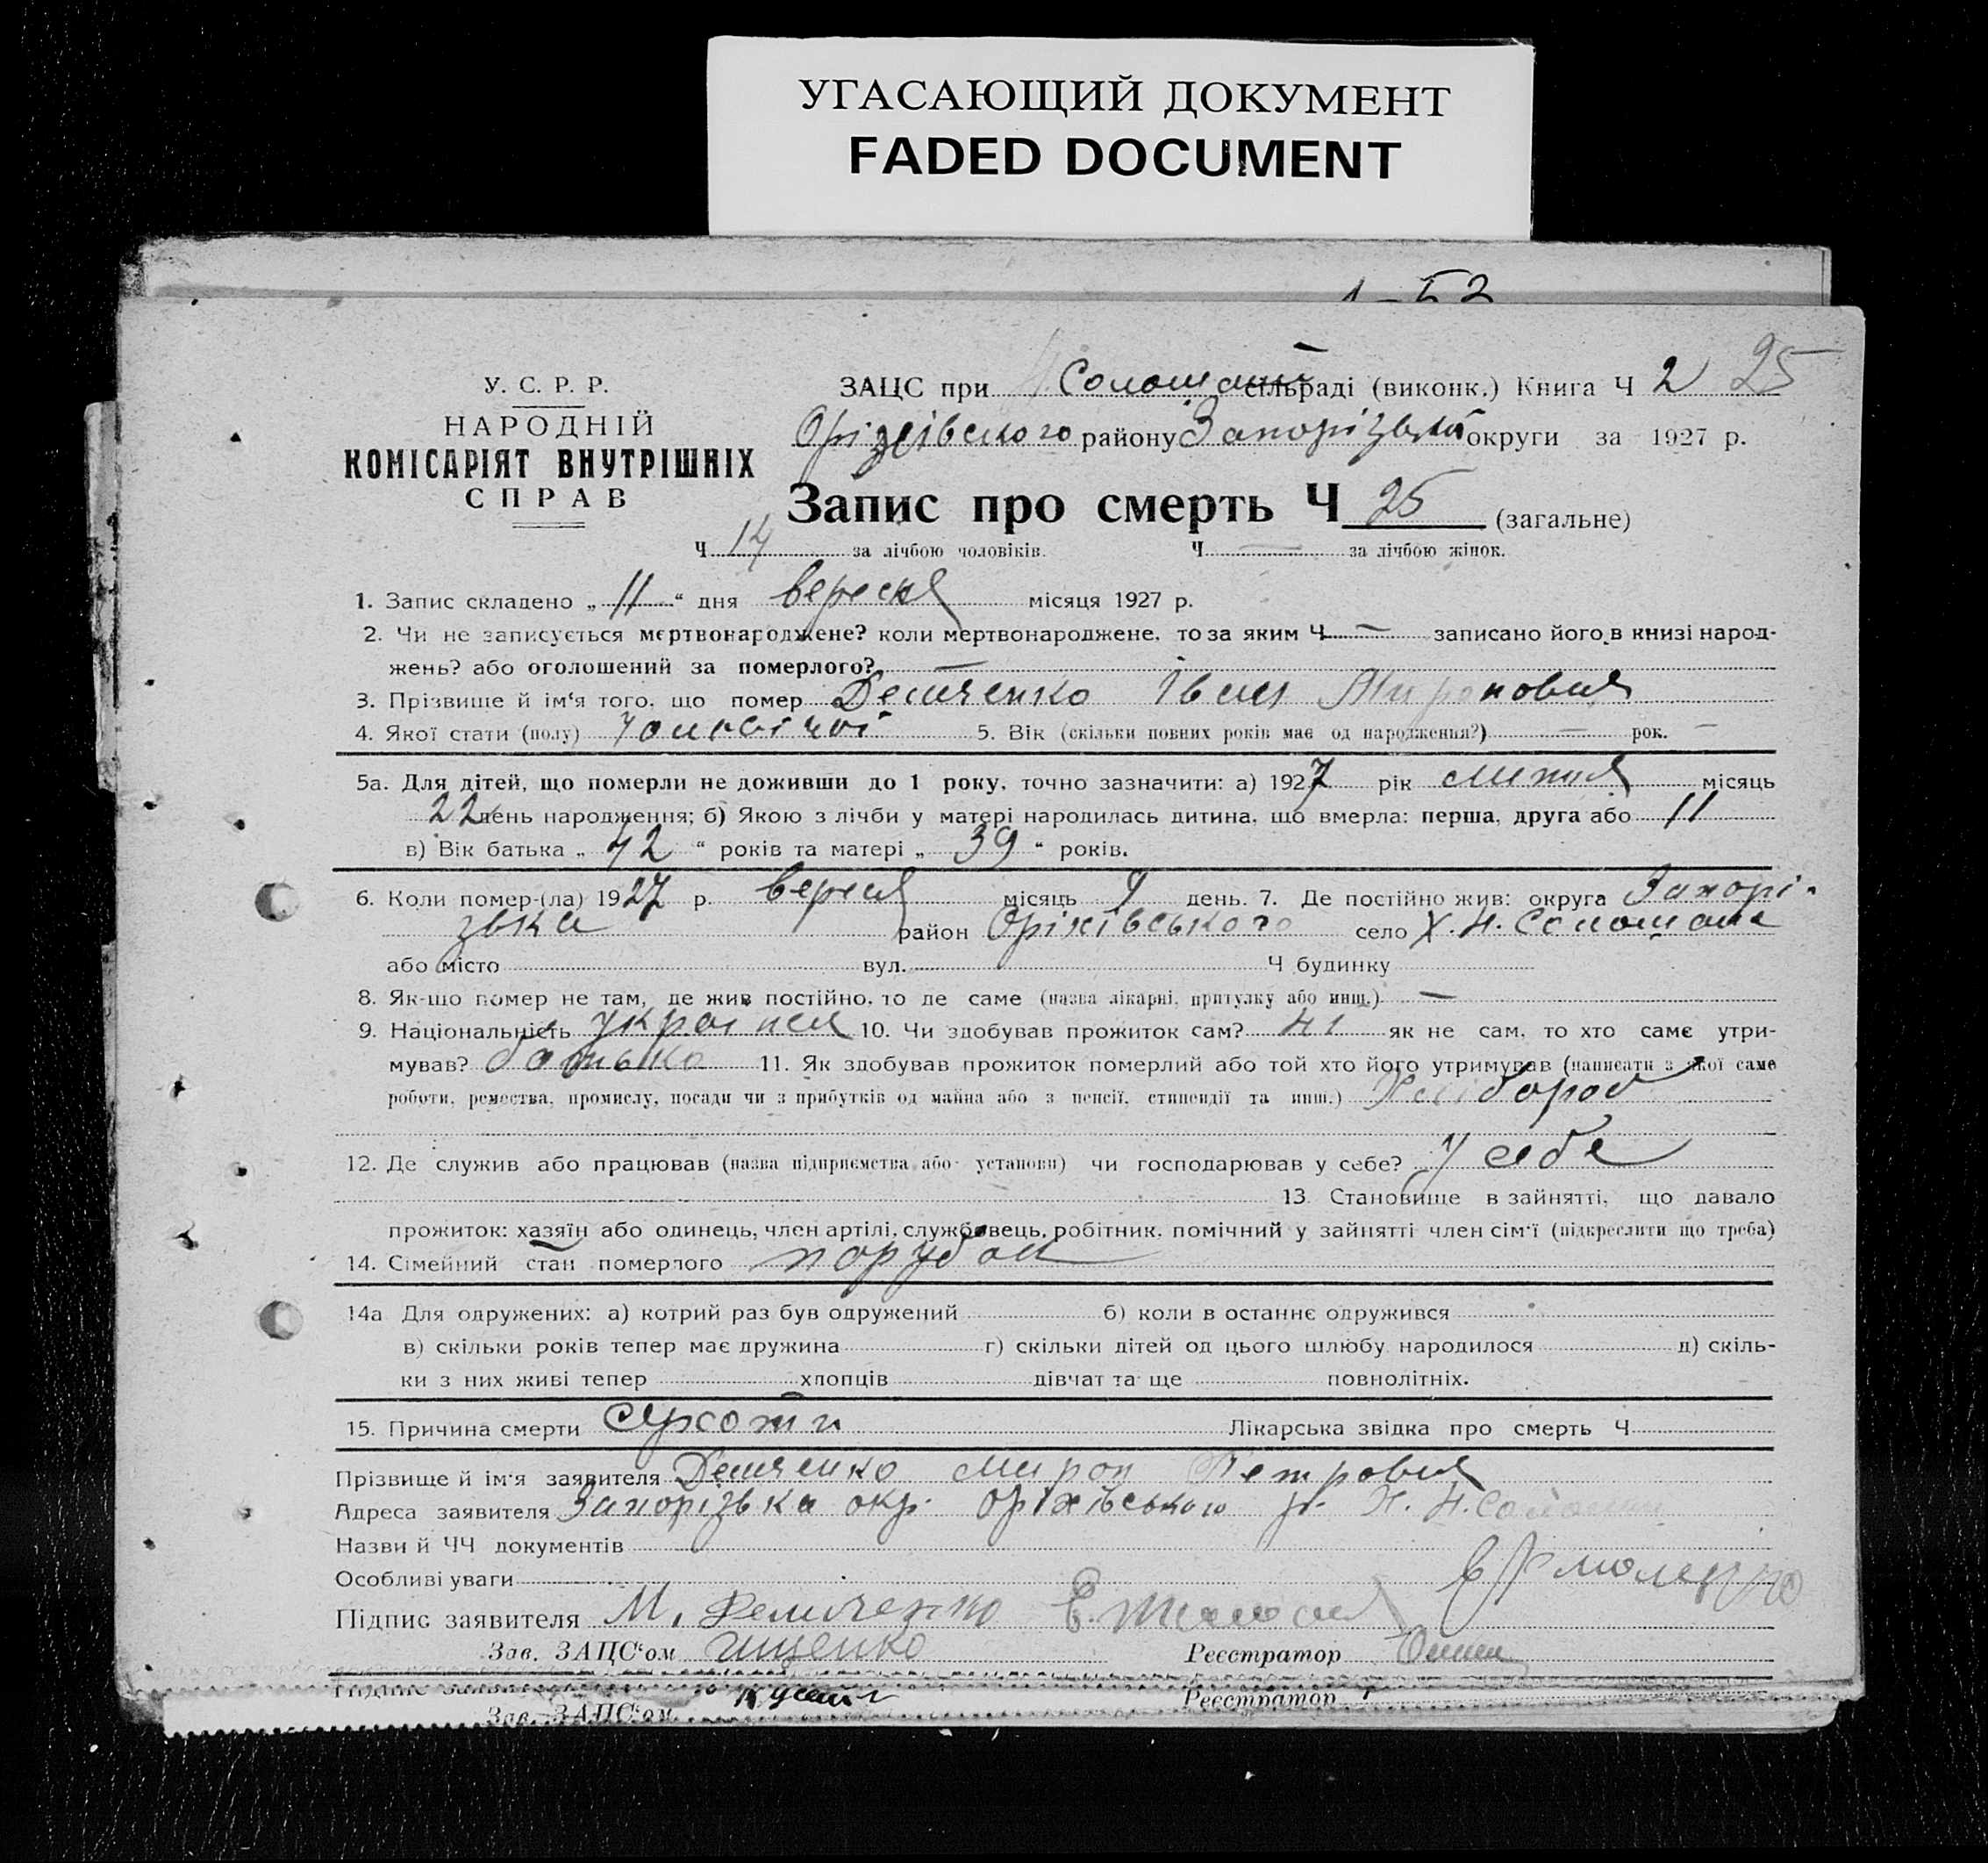 УГАСАЮЩИЙ ДОКУМЕНТ
FADED DOCUMENT
У. С. Р. Р.
НАРОДНІЙ
КОМІСАРІЯТ ВНУТРІШНІХ
СПРАВ
ЗАЦС при сільраді (виконк.) Книга Ч 2 25
району округи за 1927 р.
Запис про смерть Ч 25 (загальне)
Ч 14 за лічбою чоловіків. Ч — за лічбою жінок.
1. Запис складено „ 11 “ дня вересня місяця 1927 р.
2. Чи не записується мертвонароджене? коли мертвонароджене, то за яким Ч — записано його в книзі народ-
жень? або оголошений за померлого? —
3. Прізвище й ім‘я того, що помер Іван Миронович
4. Якої стати (полу) чоловічої 5. Вік (скільки повних років має од народження?) — рок. —
5а. Для дітей, що померли не доживши до 1 року, точно зазначити: а) 1927 рік липня місяць
22 день народження; б) Якою з лічби у матері народилась дитина, що вмерла: перша, друга або 11
в) Вік батька „ 42 “ років та матері „ 39 “ років.
6. Коли помер-(ла) 1927 р. вересня місяць 9 день. 7. Де постійно жив: округа Запорі-
зька район Оріхівського село Х. Н.
або місто вул. Ч будинку
8. Як-що помер не там, де жив постійно, то де саме (назва лікарні, притулку або инш.) —
9. Національність 10. Чи здобував прожиток сам? ні як не сам, то хто саме утри-
мував? батько 11. Як здобував прожиток померлий або той хто його утримував (написати з якої саме
роботи, ремества, промислу, посади чи з прибутків од майна або з пенсії, стипендії та инш.) Хлібороб
12. Де служив або працював (назва підприємства або установи) чи господарював у себе? У себе
13. Становище в зайнятті, що давало
прожиток: хазяїн або одинець, член артілі, службовець, робітник, помічний у зайнятті член сім‘ї (підкреслити що треба)
14. Сімейний стан померлого парубок
14а Для одружених: а) котрий раз був одружений б) коли в останнє одружився
в) скільки років тепер має дружина г) скільки дітей од цього шлюбу народилося д) скіль-
ки з них живі тепер хлопців дівчат та ще повнолітніх.
15. Причина смерти сухоти Лікарська звідка про смерть Ч
Прізвище й ім‘я заявителя Мирон Петрович
Адреса заявителя Запорізька окр. Оріхівського р.
Назви й ЧЧ документів
Особливі уваги
Підпис заявителя М.
Зав. ЗАЦС‘ом Реєстратор
Реєстратор
Зав. ЗАЦС‘ом